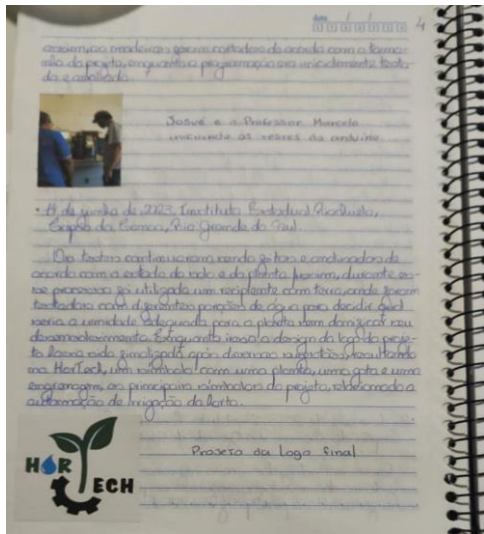 data
4
assim, as madeiras foram cortadas de acordo com o tama-
nho do projeto, enquanto a programação era inicialmente testa-
da e analisada.
Josué e o Professor Marcelo
iniciando os testes do arduino
• 14 de junho de 2023, Instituto Estadual Riachuelo,
Capão da Canoa, Rio Grande do Sul.
Os testes continuaram sendo feitos e analisados de
acordo com o estado do solo e da planta, durante es-
se processo foi utilizado um recipiente com terra, onde foram
testadas com diferentes porções de água para decidir qual
seria a umidade adequada para a planta sem danificar seu
desenvolvimento. Enquanto isso, o design da logo do proje-
to havia sido finalizado após diversas sugestões, resultando
na HorTech, um símbolo com uma planta, uma gota e uma
engrenagem, os principais simbolos do projeto, relacionado a
automação de irrigação da horta.
Projeto da logo final
HORTECH